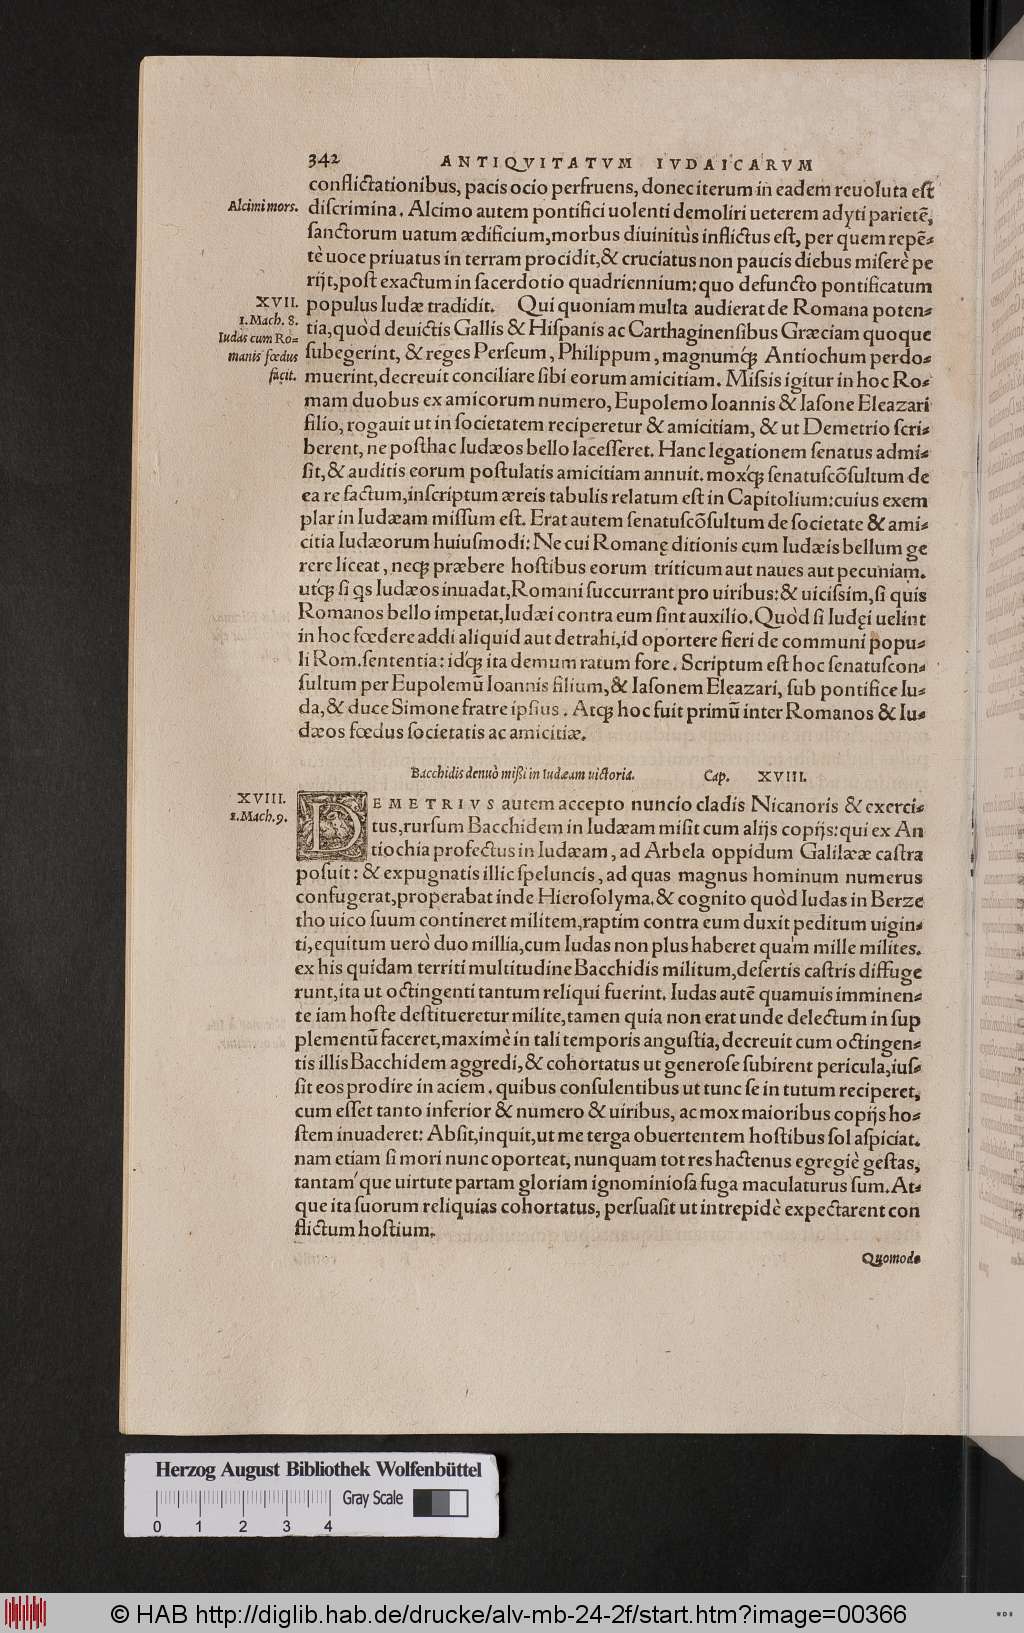 342 ANTIQVITATVM IVDAICARVM
conflictationibus, pacis ocio perfruens, donec iterum in eadem reuoluta est
Alcimi mors.
discrimina. Alcimo autem pontifici uolenti demoliri ueterem adyti parietẽ,
sanctorum uatum ædificium, morbus diuinitùs inflictus est, per quem repẽ-
tè uoce priuatus in terram procidit, & cruciatus non paucis diebus miserè pe
rijt, post exactum in sacerdotio quadriennium: quo defuncto pontificatum
XVII.
1. Mach. 8.
Iudas cum Ro-
manis fœdus
facit.
populus Iudæ tradidit. Qui quoniam multa audierat de Romana poten-
tia, quòd deuictis Gallis & Hispanis ac Carthaginensibus Græciam quoque
subegerint, & reges Perseum, Philippum, magnumq́; Antiochum perdo-
muerint, decreuit conciliare sibi eorum amicitiam. Missis igitur in hoc Ro-
mam duobus ex amicorum numero, Eupolemo Ioannis & Iasone Eleazari
filio, rogauit ut in societatem reciperetur & amicitiam, & ut Demetrio scri-
berent, ne posthac Iudæos bello lacesseret. Hanc legationem senatus admi-
sit, & auditis eorum postulatis amicitiam annuit. moxq́; senatuscõsultum de
ea re factum, inscriptum æreis tabulis relatum est in Capitolium: cuius exem
plar in Iudæam missum est. Erat autem senatuscõsultum de societate & ami-
citia Iudæorum huiusmodi: Ne cui Romanę ditionis cum Iudæis bellum ge
rere liceat, neq; præbere hostibus eorum triticum aut naues aut pecuniam.
utq́; si qs Iudæos inuadat, Romani succurrant pro uiribus: & uicissim, si quis
Romanos bello impetat, Iudæi contra eum sint auxilio. Quòd si Iudęi uelint
in hoc fœdere addi aliquid aut detrahi, id oportere fieri de communi popu-
li Rom. sententia: idq́; ita demum ratum fore. Scriptum est hoc senatuscon-
sultum per Eupolemũ Ioannis filium, & Iasonem Eleazari, sub pontifice Iu-
da, & duce Simone fratre ipsius. Atq; hoc fuit primũ inter Romanos & Iu-
dæos fœdus societatis ac amicitiæ.
Bacchidis denuò missi in Iudæam uictoria. Cap. XVIII.
XVIII.
1. Mach. 9.
DEMETRIVS autem accepto nuncio cladis Nicanoris & exerci-
tus, rursum Bacchidem in Iudæam misit cum alijs copijs: qui ex An
tiochia profectus in Iudæam, ad Arbela oppidum Galilææ castra
posuit: & expugnatis illic speluncis, ad quas magnus hominum numerus
confugerat, properabat inde Hierosolyma. & cognito quòd Iudas in Berze
tho uico suum contineret militem, raptim contra eum duxit peditum uigin-
ti, equitum uerò duo millia, cum Iudas non plus haberet quàm mille milites.
ex his quidam territi multitudine Bacchidis militum, desertis castris diffuge
runt, ita ut octingenti tantum reliqui fuerint. Iudas autẽ quamuis imminen-
te iam hoste destitueretur milite, tamen quia non erat unde delectum in sup
plementũ faceret, maximè in tali temporis angustia, decreuit cum octingen-
tis illis Bacchidem aggredi, & cohortatus ut generose subirent pericula, ius-
sit eos prodire in aciem. quibus consulentibus ut tunc se in tutum reciperet,
cum esset tanto inferior & numero & uiribus, ac mox maioribus copijs ho-
stem inuaderet: Absit, inquit, ut me terga obuertentem hostibus sol aspiciat.
nam etiam si mori nunc oporteat, nunquam tot res hactenus egregiè gestas,
tantaḿque uirtute partam gloriam ignominiosa fuga maculaturus sum. At-
que ita suorum reliquias cohortatus, persuasit ut intrepidè expectarent con
flictum hostium.
Quomodo
Herzog August Bibliothek Wolfenbüttel
Gray Scale
0 1 2 3 4
© HAB http://diglib.hab.de/drucke/alv-mb-24-2f/start.htm?image=00366